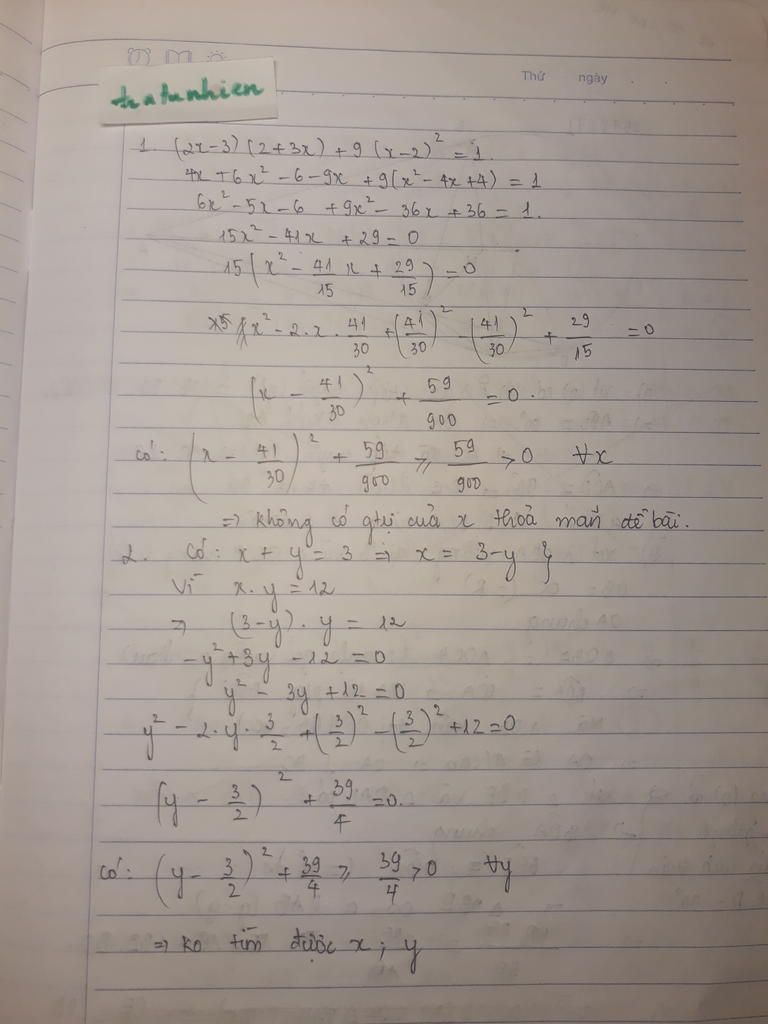 Thứ ngày
tratunhien
1. (2x-3)(2+3x) + 9(x-2)² = 1.
4x + 6x² - 6 - 9x + 9(x² - 4x + 4) = 1
6x² - 5x - 6 + 9x² - 36x + 36 = 1.
15x² - 41x + 29 = 0
15(x² - 41/15 x + 29/15) = 0
x² - 2.x.41/30 + (41/30)² - (41/30)² + 29/15 = 0
(x - 41/30)² + 59/900 = 0.
Có: (x - 41/30)² + 59/900 ≥ 59/900 > 0 ∀x
⇒ không có gtrị của x thoả mãn đề bài.
2. Có: x + y = 3 ⇒ x = 3-y }
Vì x.y = 12
⇒ (3-y).y = 12
-y² + 3y - 12 = 0
y² - 3y + 12 = 0
y² - 2.y.3/2 + (3/2)² - (3/2)² + 12 = 0
(y - 3/2)² + 39/4 = 0.
Có: (y - 3/2)² + 39/4 ≥ 39/4 > 0 ∀y
⇒ ko tìm được x ; y